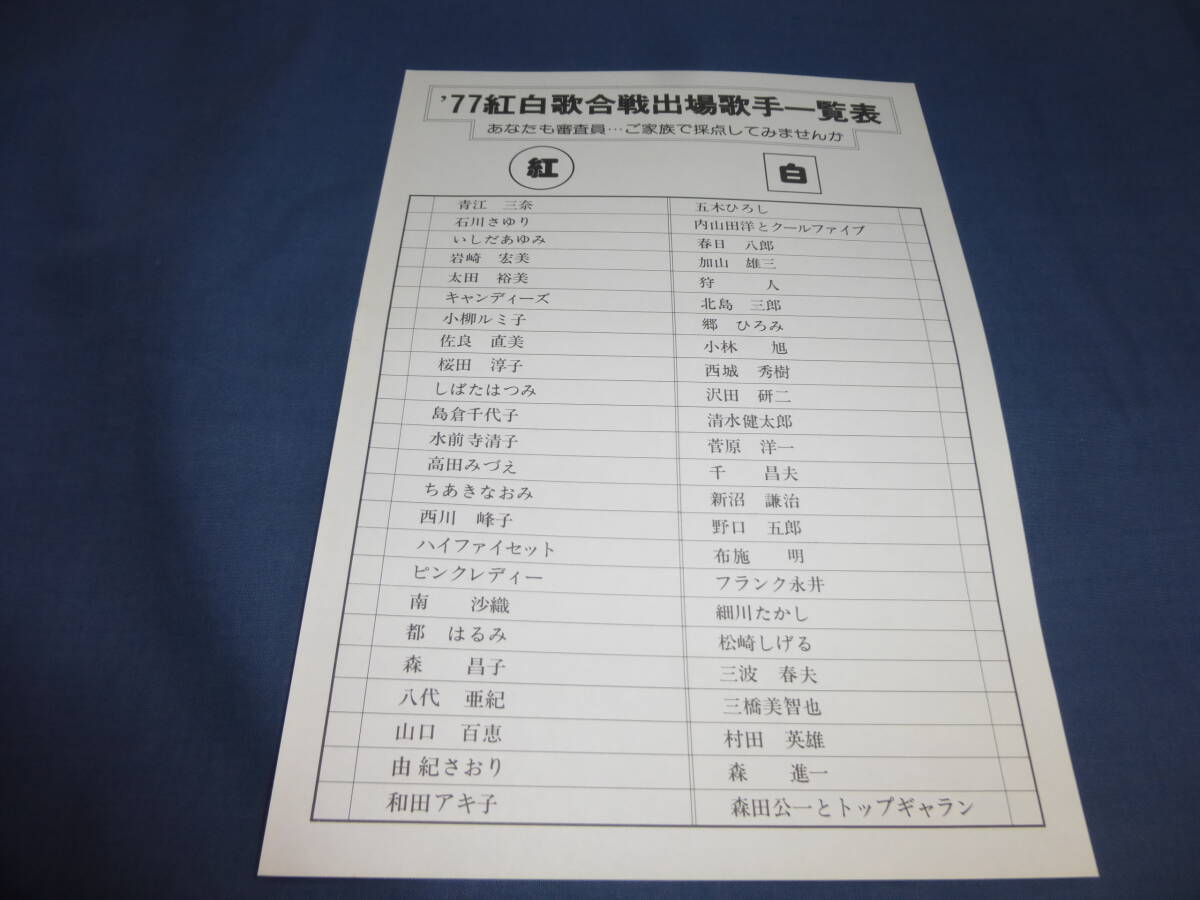 '77紅白歌合戦出場歌手一覧表
あなたも審査員…ご家族で採点してみませんか
紅 白
青江 三奈 五木ひろし
石川さゆり 内山田洋とクールファイブ
いしだあゆみ 春日 八郎
岩崎 宏美 加山 雄三
太田 裕美 狩 人
キャンディーズ 北島 三郎
小柳ルミ子 郷 ひろみ
佐良 直美 小林 旭
桜田 淳子 西城 秀樹
しばたはつみ 沢田 研二
島倉千代子 清水健太郎
水前寺清子 菅原 洋一
高田みづえ 千 昌夫
ちあきなおみ 新沼 謙治
西川 峰子 野口 五郎
ハイファイセット 布施 明
ピンクレディー フランク永井
南 沙織 細川たかし
都 はるみ 松崎しげる
森 昌子 三波 春夫
八代 亜紀 三橋美智也
山口 百恵 村田 英雄
由紀さおり 森 進一
和田アキ子 森田公一とトップギャラン